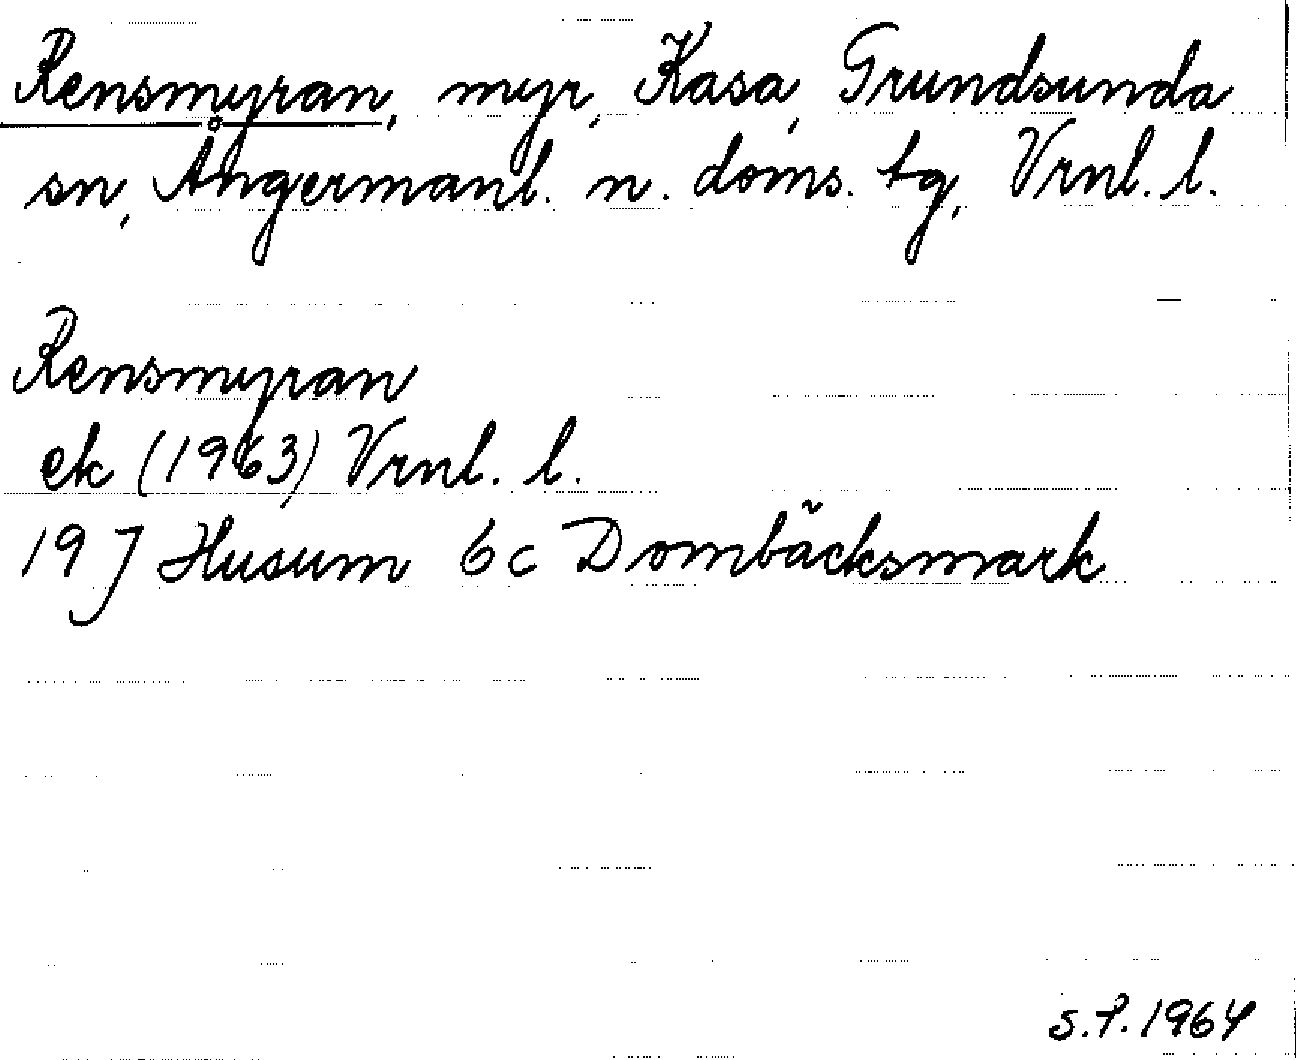 Rensmyran, myr, Kasa, Grundsunda
sn, Ångermanl. n. doms. tg, Vrnl. l.
Rensmyran
ek (1963) Vrnl. l.
19 J Husum 6c Dombäcksmark
S.P. 1964